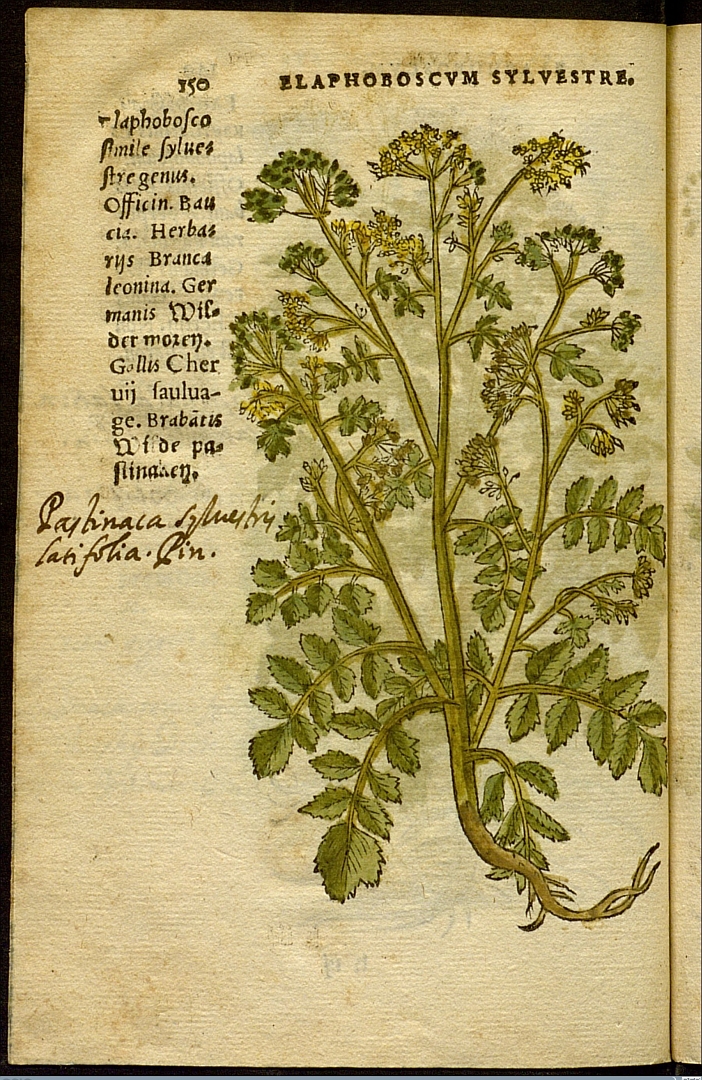 150 ELAPHOBOSCVM SYLVESTRE.
Elaphobosco
simile sylue=
stre genus.
Officin. Bau
cia. Herba=
rijs Branca
leonina. Ger
manis Wil=
der moren.
Gallis Cher
uij saulua-
ge. Brabãtis
Wilde pa=
stinaken.
Pastinaca sylvestris
latifolia. Pin.